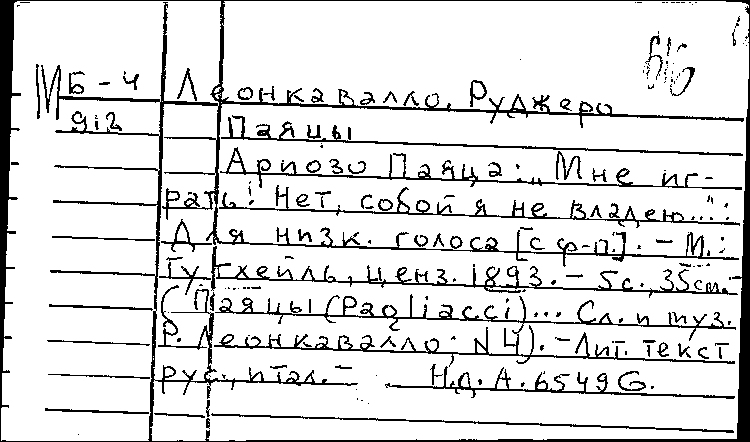 616
М Б-4 Леонкавалло, Руджеро
912 Паяцы
Ариозо Паяца: „Мне иг-
рать! Нет, собой я не владею...":
Для низк. голоса [с ф-п.]. - М.:
Гутхейль, ценз. 1893. - 5с., 35см. -
(Паяцы (Pagliacci)... Сл. и муз.
Р. Леонкавалло; N4). - Лит. текст
рус., итал. - Н.д. A.6549G.